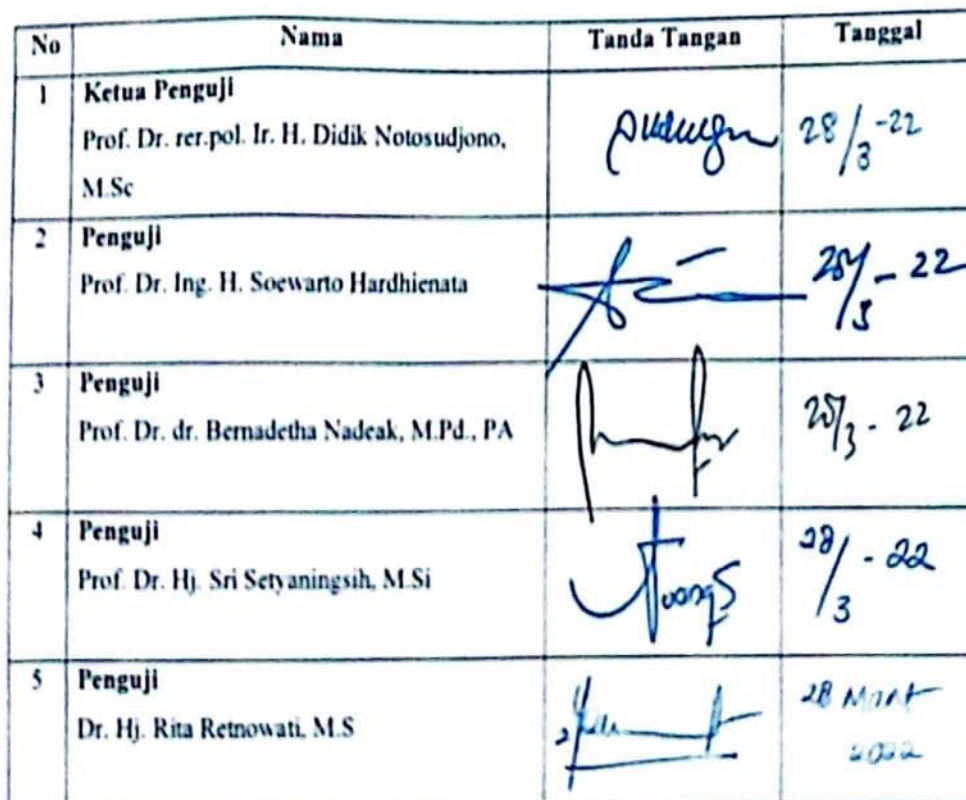 No Nama Tanda Tangan Tanggal
1 Ketua Penguji
Prof. Dr. rer.pol. Ir. H. Didik Notosudjono,
M.Sc
28/3-22
2 Penguji
Prof. Dr. Ing. H. Soewarto Hardhienata
- 22
3 Penguji
Prof. Dr. dr. Bernadetha Nadeak, M.Pd., PA
/3 - 22
4 Penguji
Prof. Dr. Hj. Sri Setyaningsih, M.Si
28/3 - 22
5 Penguji
Dr. Hj. Rita Retnowati, M.S
28 Maret
2022